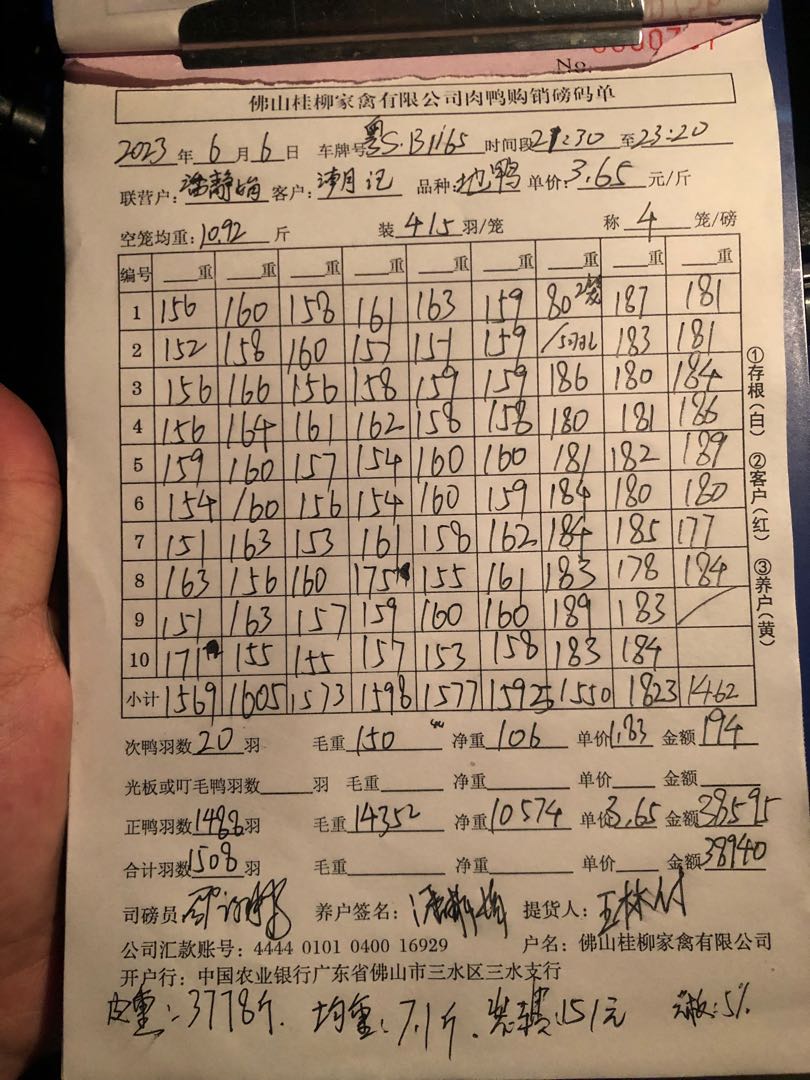 No.
佛山桂柳家禽有限公司肉鸭购销磅码单
2023年 6月 6日 车牌号粤S·B1165 时间段21:30至23:20
联营户: 静娟 客户: 记 品种:地鸭 单价:3.65元/斤
空笼均重:10.92斤 装 4.15羽/笼 称 4 笼/磅
编号 重 重 重 重 重 重 重 重 重
1 156 160 158 161 163 159 80 187 181
2 152 158 160 157 151 159 183 181
3 156 166 156 158 159 159 186 180 184
4 156 164 161 162 158 158 180 181 186
5 159 160 157 154 160 160 181 182 189
6 154 160 156 154 160 159 184 180 180
7 151 163 153 161 158 162 184 185 177
8 163 156 160 175 155 161 183 178 184
9 151 163 157 159 160 160 189 183
10 171 155 155 157 153 158 183 184
小计 1569 1605 1573 1598 1577 1592 1550 1823 1462
①存根(白) ②客户(红) ③养户(黄)
次鸭羽数20羽 毛重150 净重106 单价1.83 金额194
光板或叮毛鸭羽数 羽 毛重 净重 单价 金额
正鸭羽数1488羽 毛重14352 净重10574 单价3.65 金额38595
合计羽数1508羽 毛重 净重 单价 金额38940
司磅员 养户签名: 提货人:王林
公司汇款账号:4444 0101 0400 16929 户名:佛山桂柳家禽有限公司
开户行:中国农业银行广东省佛山市三水区三水支行
皮重:3778斤. 均重:7.1斤. 装鸭费:151元 :5%